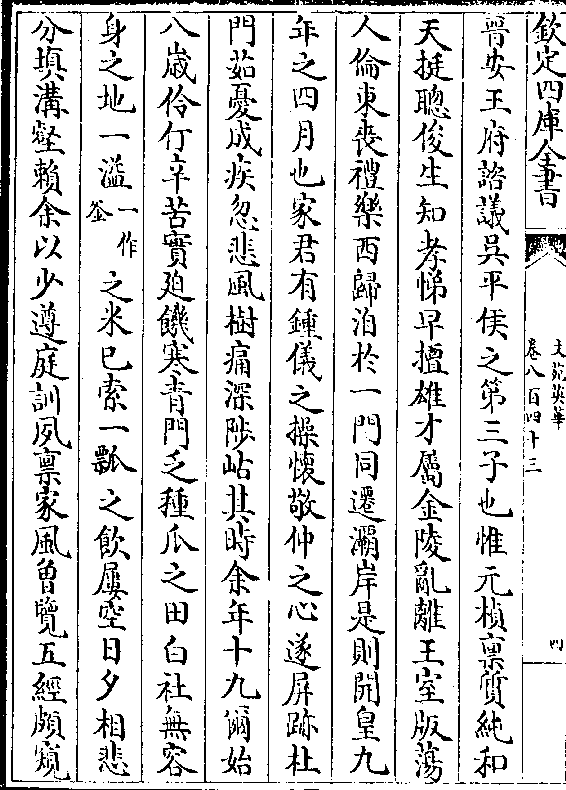 欽定四庫全書
文苑英華
卷八百四十三
四
晉安王府諮議吳平侯之第三子也惟元楨禀質純和
天挺聰俊生知孝悌早擅雄才屬金陵亂離王室版蕩
人倫東喪禮樂西歸洎於一門同遷灞岸是則開皇九
年之四月也家君有鍾儀之操懷敬仲之心遂屏跡杜
門茹憂成疾忽悲風樹痛深陟岵其時余年十九爾始
八歲伶仃辛苦實廹饑寒青門乏種瓜之田白社無容
身之地一溢一作釡之米已索一瓢之飲屢空日夕相悲
分填溝壑賴余以少遵庭訓夙禀家風曾覽五經頗窺